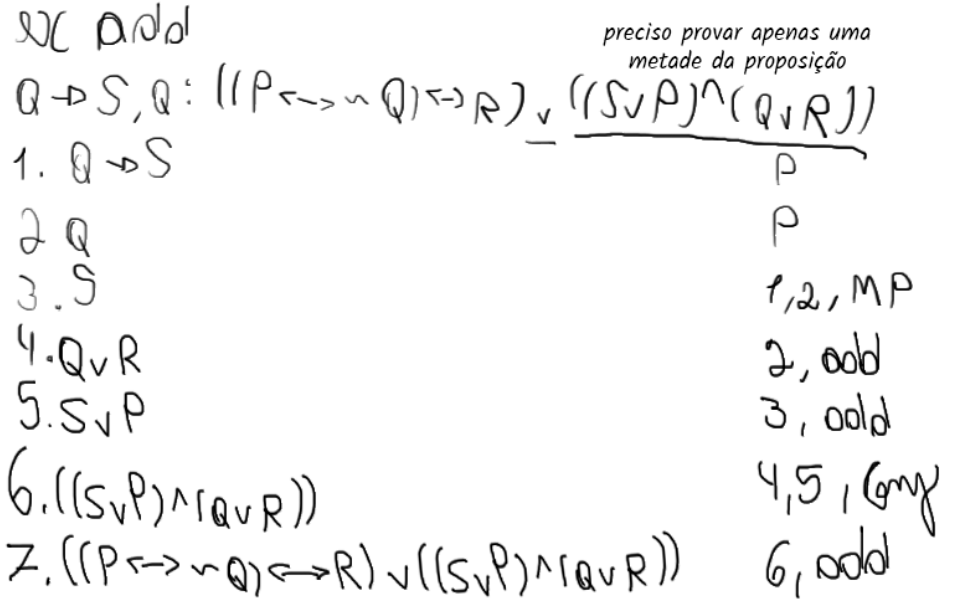 ex add
preciso provar apenas uma
metade da proposição
Q → S, Q : ((P <--> ~ Q) <-> R) v ((S v P) ^ (Q v R))
1. Q → S P
2 Q P
3. S 1,2, MP
4. Q v R 2, add
5. S v P 3, add
6. ((S v P) ^ (Q v R)) 4,5, Conj
7. ((P <--> ~ Q) <--> R) v ((S v P) ^ (Q v R)) 6, add